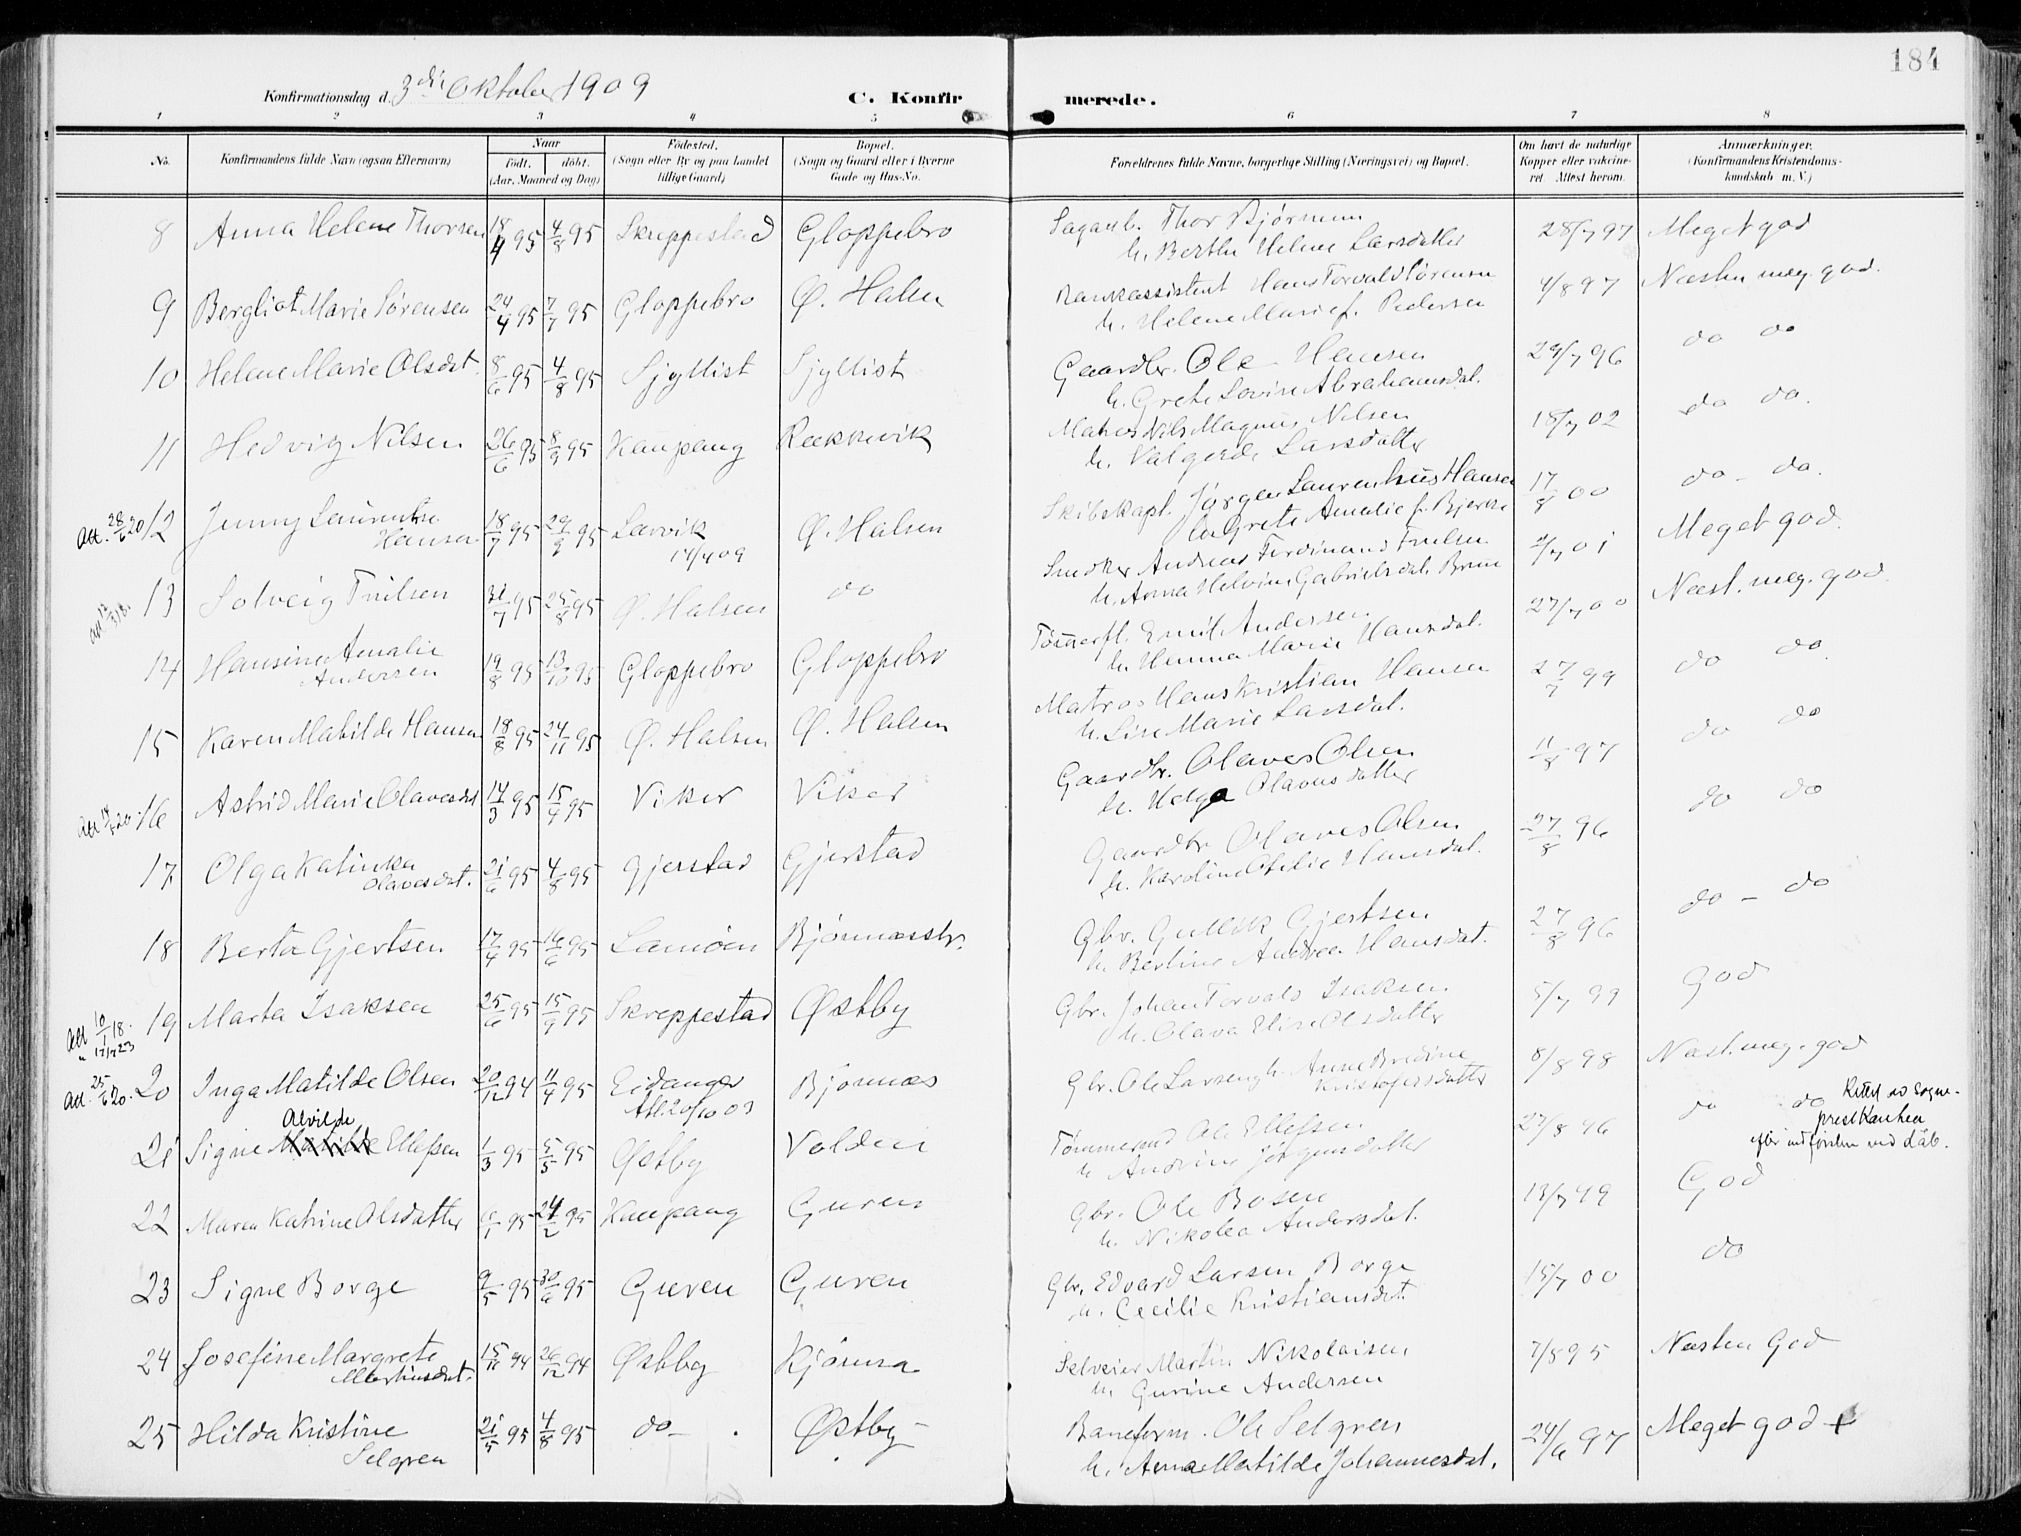 184
Konfirmationsdag d. 3die Oktober 1909
C. Konfirmerede.
1 2 3 4 5 6 7 8
No. Konfirmandens fulde Navn (ogsaa Efternavn) Naar født. døbt. (Aar, Maaned og Dag) Fødested. (Sogn eller By og paa Landet tillige Gaard) Bopæl. (Sogn og Gaard eller i Byerne Gade og Hus-No. Forældrenes fulde Navne, borgerlige Stilling (Næringsvei) og Bopæl. Om havt de naturlige Kopper eller vaksineret. Attest herom. Anmærkninger. (Konfirmandens Kristendomskundskab m. V.)
8 Anna Helene Thorsen 18/4 95 4/8 95 Skreppestad Gloppebro Sagarb. Thor Bjørnsen 28/7 97 Meget god
h. Berthe Helene Larsdatter
9 Bergliot Marie Sørensen 24/4 95 7/7 95 Gloppebro Ø. Halsen Bankassistent Hans Torvald Sørensen 4/8 97 Næsten meg. god.
h. Helene Marie f. Pedersen
10 Helene Marie Olsdat. 8/6 95 4/8 95 Sjyllist Sjyllist Gaardbr. Ole Hansen 29/7 96 do do
h. Grete Lovise Abrahamsdat.
11 Hedvig Nilsen 26/6 95 8/9 95 Kaupang Rækkevik Matros Nils Magnus Nilsen 18/7 02 do do.
h. Valgerda Larsdatter
Att. 28/6 20 12 Jenny Laurentse Hansen 18/7 95 29/9 95 Larvik 17/4 09 Ø. Halsen Skibskapt. Jørgen Laurentius Hansen 17/8 00 do - do.
h. Grete Amalie f. Bjerke
13 Solveig Truelsen 31/7 95 25/8 95 Ø. Halsen do Snedker Andreas Ferdinand Truelsen 2/7 01 Meget god.
h. Anna Helvine Gabrielsdat. Brun
14 Hansine Amalie Andersen 19/8 95 13/10 95 Gloppebro Gloppebro Tømmerfl. Emil Andersen 27/7 00 Næst. meg. god.
h. Hanna Marie Hansdat.
15 Karen Matilde Hansen 18/8 95 24/11 95 Ø. Halsen Ø. Halsen Matros Hans Kristian Hansen 27/7 99 do do.
h. Lise Marie Larsdat.
16 Astrid Marie Olavesdat 14/3 95 15/4 95 Viker Viker Gaardbr. Olaves Olsen 11/8 97 do do
h. Helga Olavusdatter
17 Olga Katinka Olavesdat. 21/6 95 4/8 95 Gjerstad Gjerstad Gaardbr. Olaves Olsen 27/8 96 do do
h. Karoline Otilie Hansdat.
18 Berta Gjertsen 17/4 95 16/6 95 Lamøen Bjønnesstr. Gbr. Gullik Gjertsen 27/8 96 do - do
h. Bertine Andrea Hansdat.
Att 10/1 18. " 17/7 23 19 Marta Isaksen 25/6 95 15/9 95 Skreppestad Østby Gbr. Johan Torvald Isaksen 5/7 99 God
h. Olava Elise Olsdatter
Att. 25/6 20. 20 Inga Matilde Olsen 20/12 94 11/4 95 Eidanger Att. 20/10 03 Bjønnes Gbr. Ole Larsen, h. Anne Bredine Kristofersdatter 8/8 98 Næst. meg. god
21 Signe Matilde Alvilde Ellefsen 1/3 95 5/5 95 Østby Volden Tømmermd Ole Ellefsen 27/8 96 do do Rettet av sogneprest
h. Andrine Jørgensdatter
22 Maren Katrine Olsdatter 6/1 95 24/2 95 Kaupang Guren Gbr. Ole Bosen 13/7 99 God
h. Nikolea Andersdat.
23 Signe Borge 9/5 95 30/6 95 Guren Guren Gbr. Edvard Larsen Borge 15/7 00 do
h. Cecilie Kristiansdat.
24 Josefine Margrete Martinsdat. 15/11 94 26/12 94 Østby Kjønna Selveier Martin Nikolaisen 7/8 95 Næsten God
h. Gurine Andersen
25 Hilda Kristine Selgren 21/5 95 4/8 95 do - Østby - Baneform. Ole Selgren 24/6 97 Meget god
h. Anna Matilde Johannesdat.